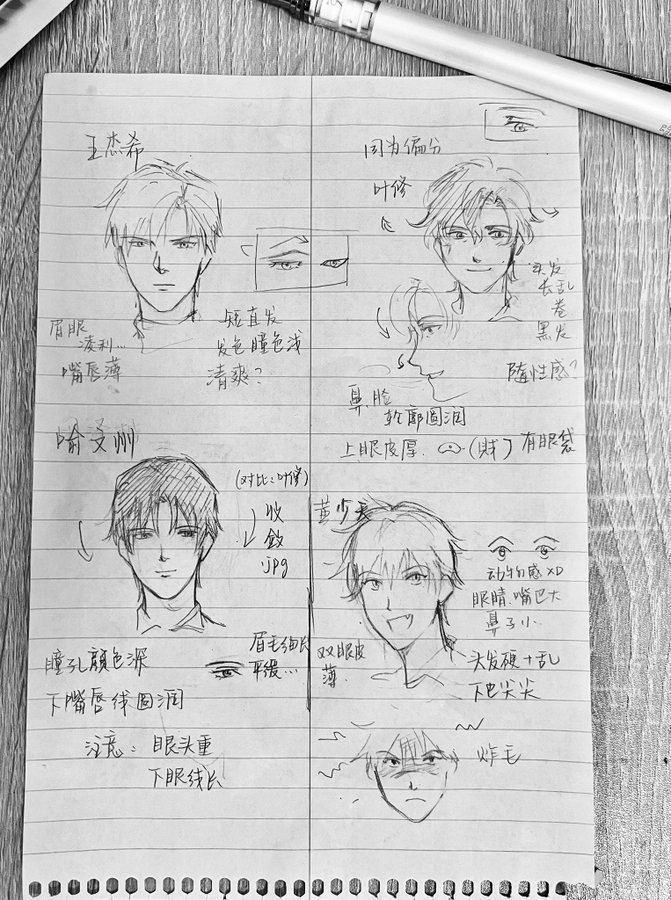 王杰希
眉眼
凌利...
嘴唇薄
短直发
发色瞳色浅
清爽?
因为偏分
叶修
头发
长乱
卷
黑发
随性感?
鼻、脸
轮廓圆润
上眼皮厚. (贱) 有眼袋
喻文州
(对比:叶修)
收
敛
.jpg
眉毛细长
平缓...
瞳孔颜色深
下嘴唇线圆润
注意: 眼头重
下眼线长
黄少天
动物感XD
眼睛、嘴巴大
鼻子小..
双眼皮
薄.
头发硬+乱
下巴尖尖
炸毛